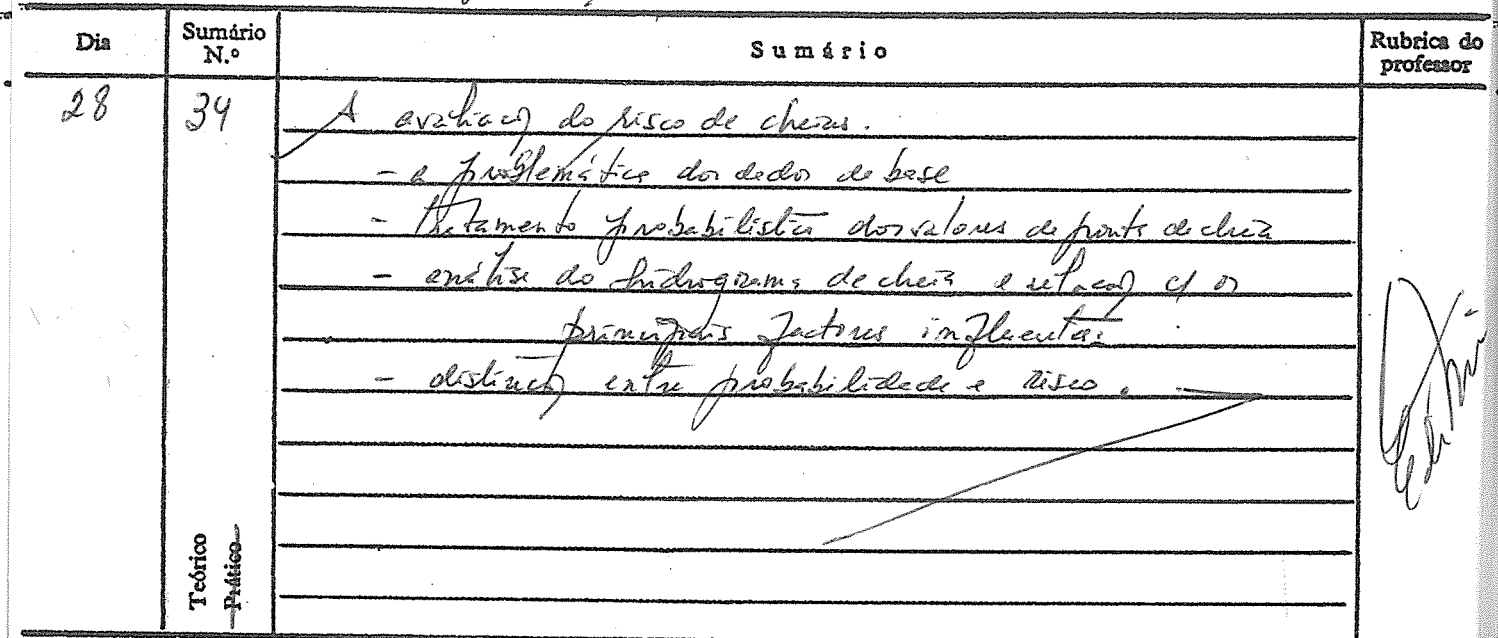 Dia Sumário N.º Sumário Rubrica do professor
28 34 A avaliação do risco de cheias.
- a problemática dos dados de base
- tratamento probabilístico dos valores de ponta de cheia
- análise do hidrograma de cheia e relação c/ os
principais factores influentes.
- distinção entre probabilidade e risco.
Teórico
Prático